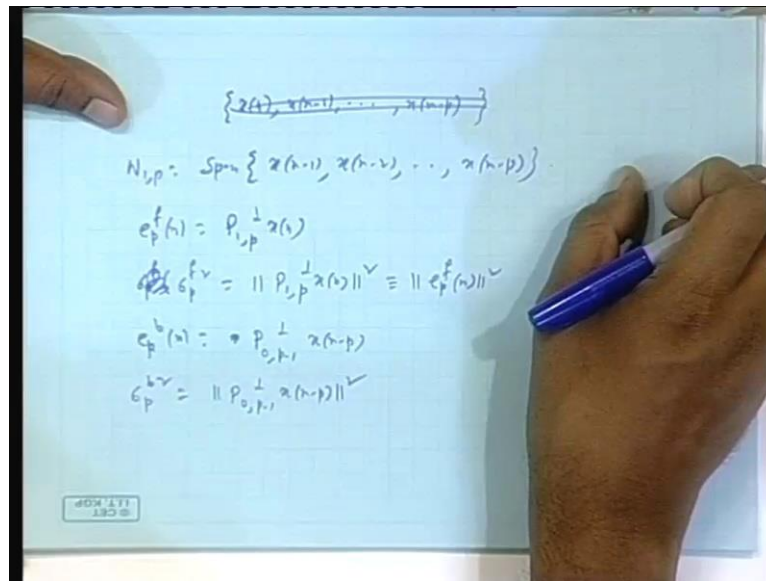 { x(n), x(n-1), . . . , x(n-p) }
W_{1,p} = Span { x(n-1), x(n-2), . . , x(n-p) }.
e_p^f(n) = P_{1,p}^⊥ x(n)
σ_p^{f2} = || P_{1,p}^⊥ x(n) ||^2 ≡ || e_p^f(n) ||^2
e_p^b(n) = P_{0,p-1}^⊥ x(n-p)
σ_p^{b2} = || P_{0,p-1}^⊥ x(n-p) ||^2
© CET
I.I.T. KGP